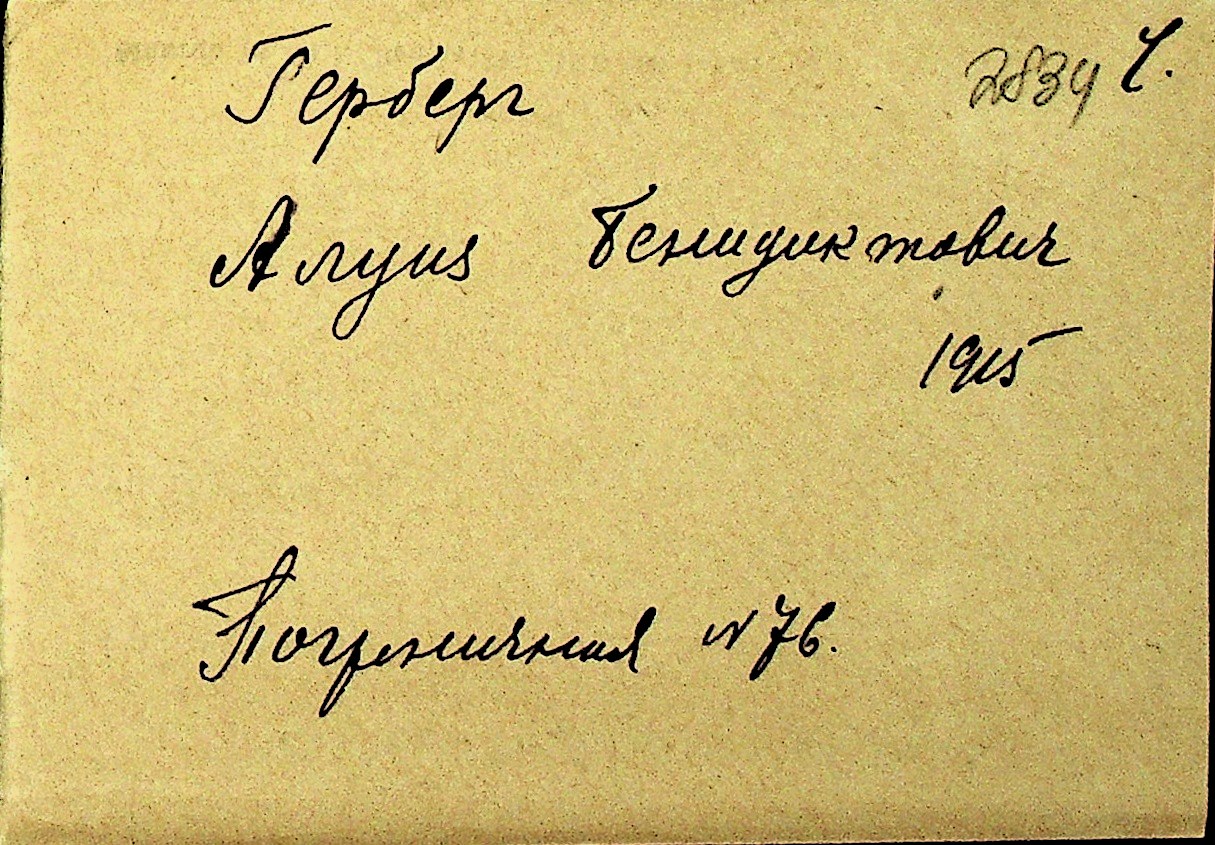 Герберг 2834 Ч.
Алуиз Бенидиктович
1915
Пограничная N 76.